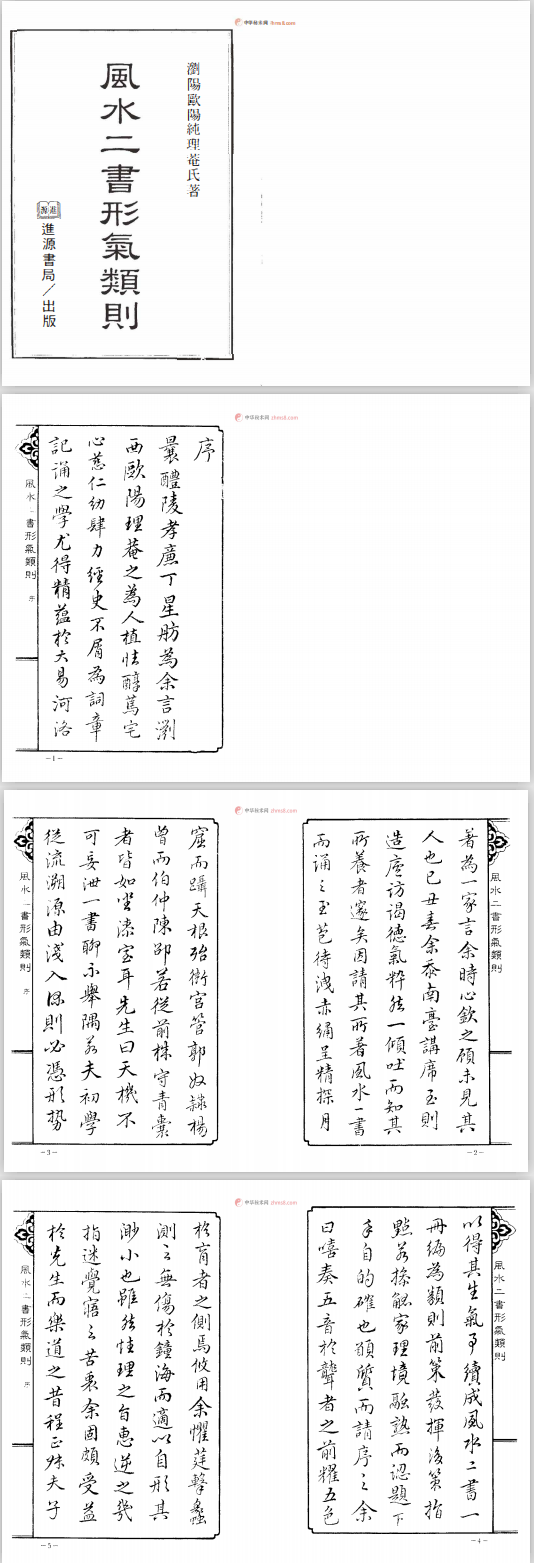 中华秘本网 zhmsll.com
瀏陽歐陽純理菴氏著
風水二書形氣類則
進源
進源書局／出版
中华秘本网 zhmsll.com
序
曩醴陵孝廉丁星舫為余言瀏
西歐陽理菴之為人植性醇篤宅
心慈仁幼肆力經史不屑為詞章
記誦之學尤得精蘊於大易河洛
風水二書形氣類則 序
-1-
中华秘本网 zhmsll.com
著為一家言余時心欽之顧未見其
人也已丑春余忝南臺講席至則
造廬访谒德氣粹然一傾吐而知其
所養者邃矣因請其所著風水一書
而誦之至苞待洩赤綢呈精探月
風水二書形氣類則
-2-
窟而躡天根殆衙官管郭奴隸楊
曾而伯仲陳邵若從前株守青囊
者皆如坐漆室耳先生曰天機不
可妄泄一書聊示舉隅若夫初學
從流溯源由淺入深則必憑形势
風水二書形氣類則 序
-3-
中华秘本网 zhmsll.com
以得其生氣爭續成風水二書一
冊編為類則前策發揮後策指
點若操觚家理境融熟而認題下
手自的確也頎質而請序之余
曰嘻奏五音於聾者之前耀五色
風水二書形氣類則
-4-
於盲者之側焉攸用余懼莛擊蠡
測之無傷於鐘海而適以自形其
渺小也雖然性理之旨惠逆之幾
指迷覺寤之苦衷余固頗受益
於先生而樂道之昔程正叔夫子
風水二書形氣類則 序
-5-